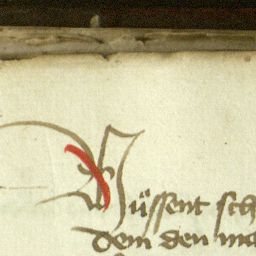 Wüssent sch
Dem den ma